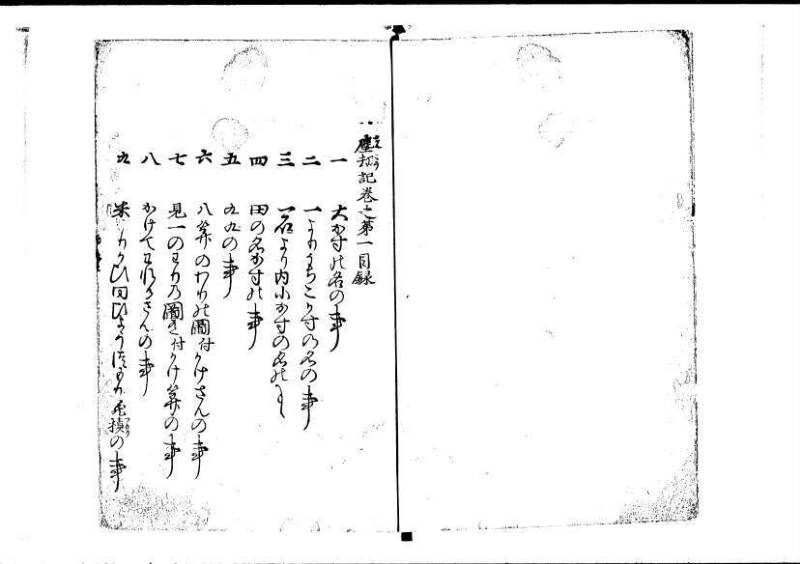 塵劫記巻之第一目録
一 大かずの名の事
二 一よりうちこかずの名の事
三 一石より内小かずの名の事
四 田の名かずの事
五 九九の事
六 八算のわりの図付かけさんの事
七 見一のわりの図付かけ算の事
八 かけてわるさんの事
九 米